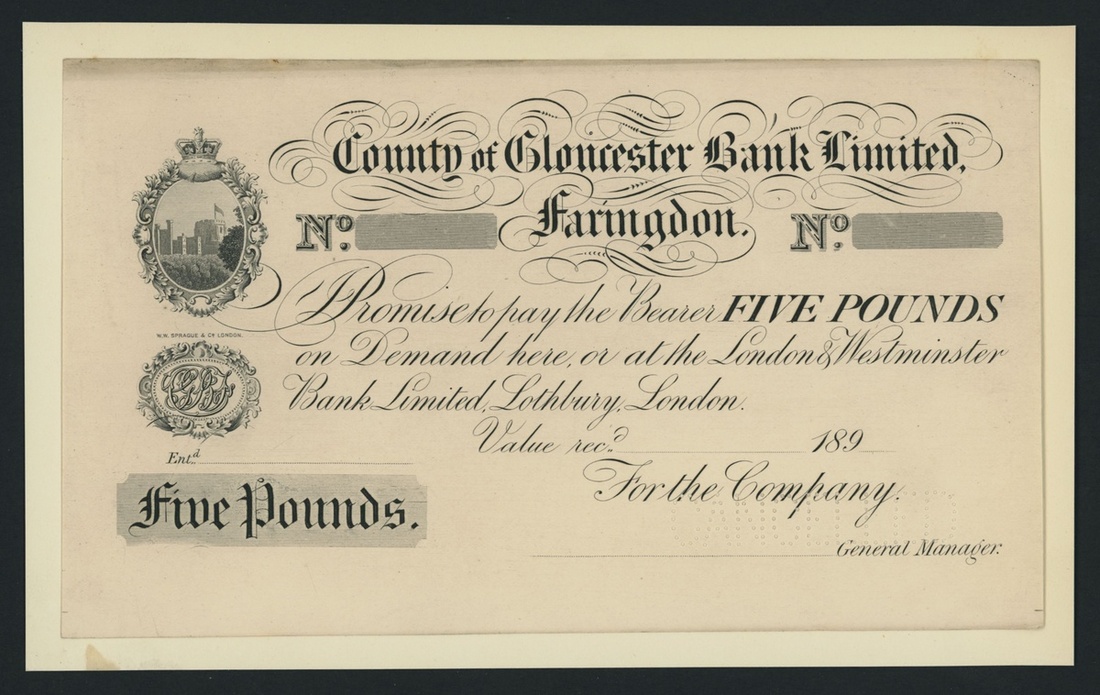 County of Gloucester Bank Limited,
Faringdon.
No. No.
I Promise to pay the Bearer FIVE POUNDS
on Demand here, or at the London & Westminster
Bank Limited, Lothbury, London.
W.W. SPRAGUE & Co LONDON.
Value rec.d 189
Ent.d
For the Company.
Five Pounds.
General Manager.